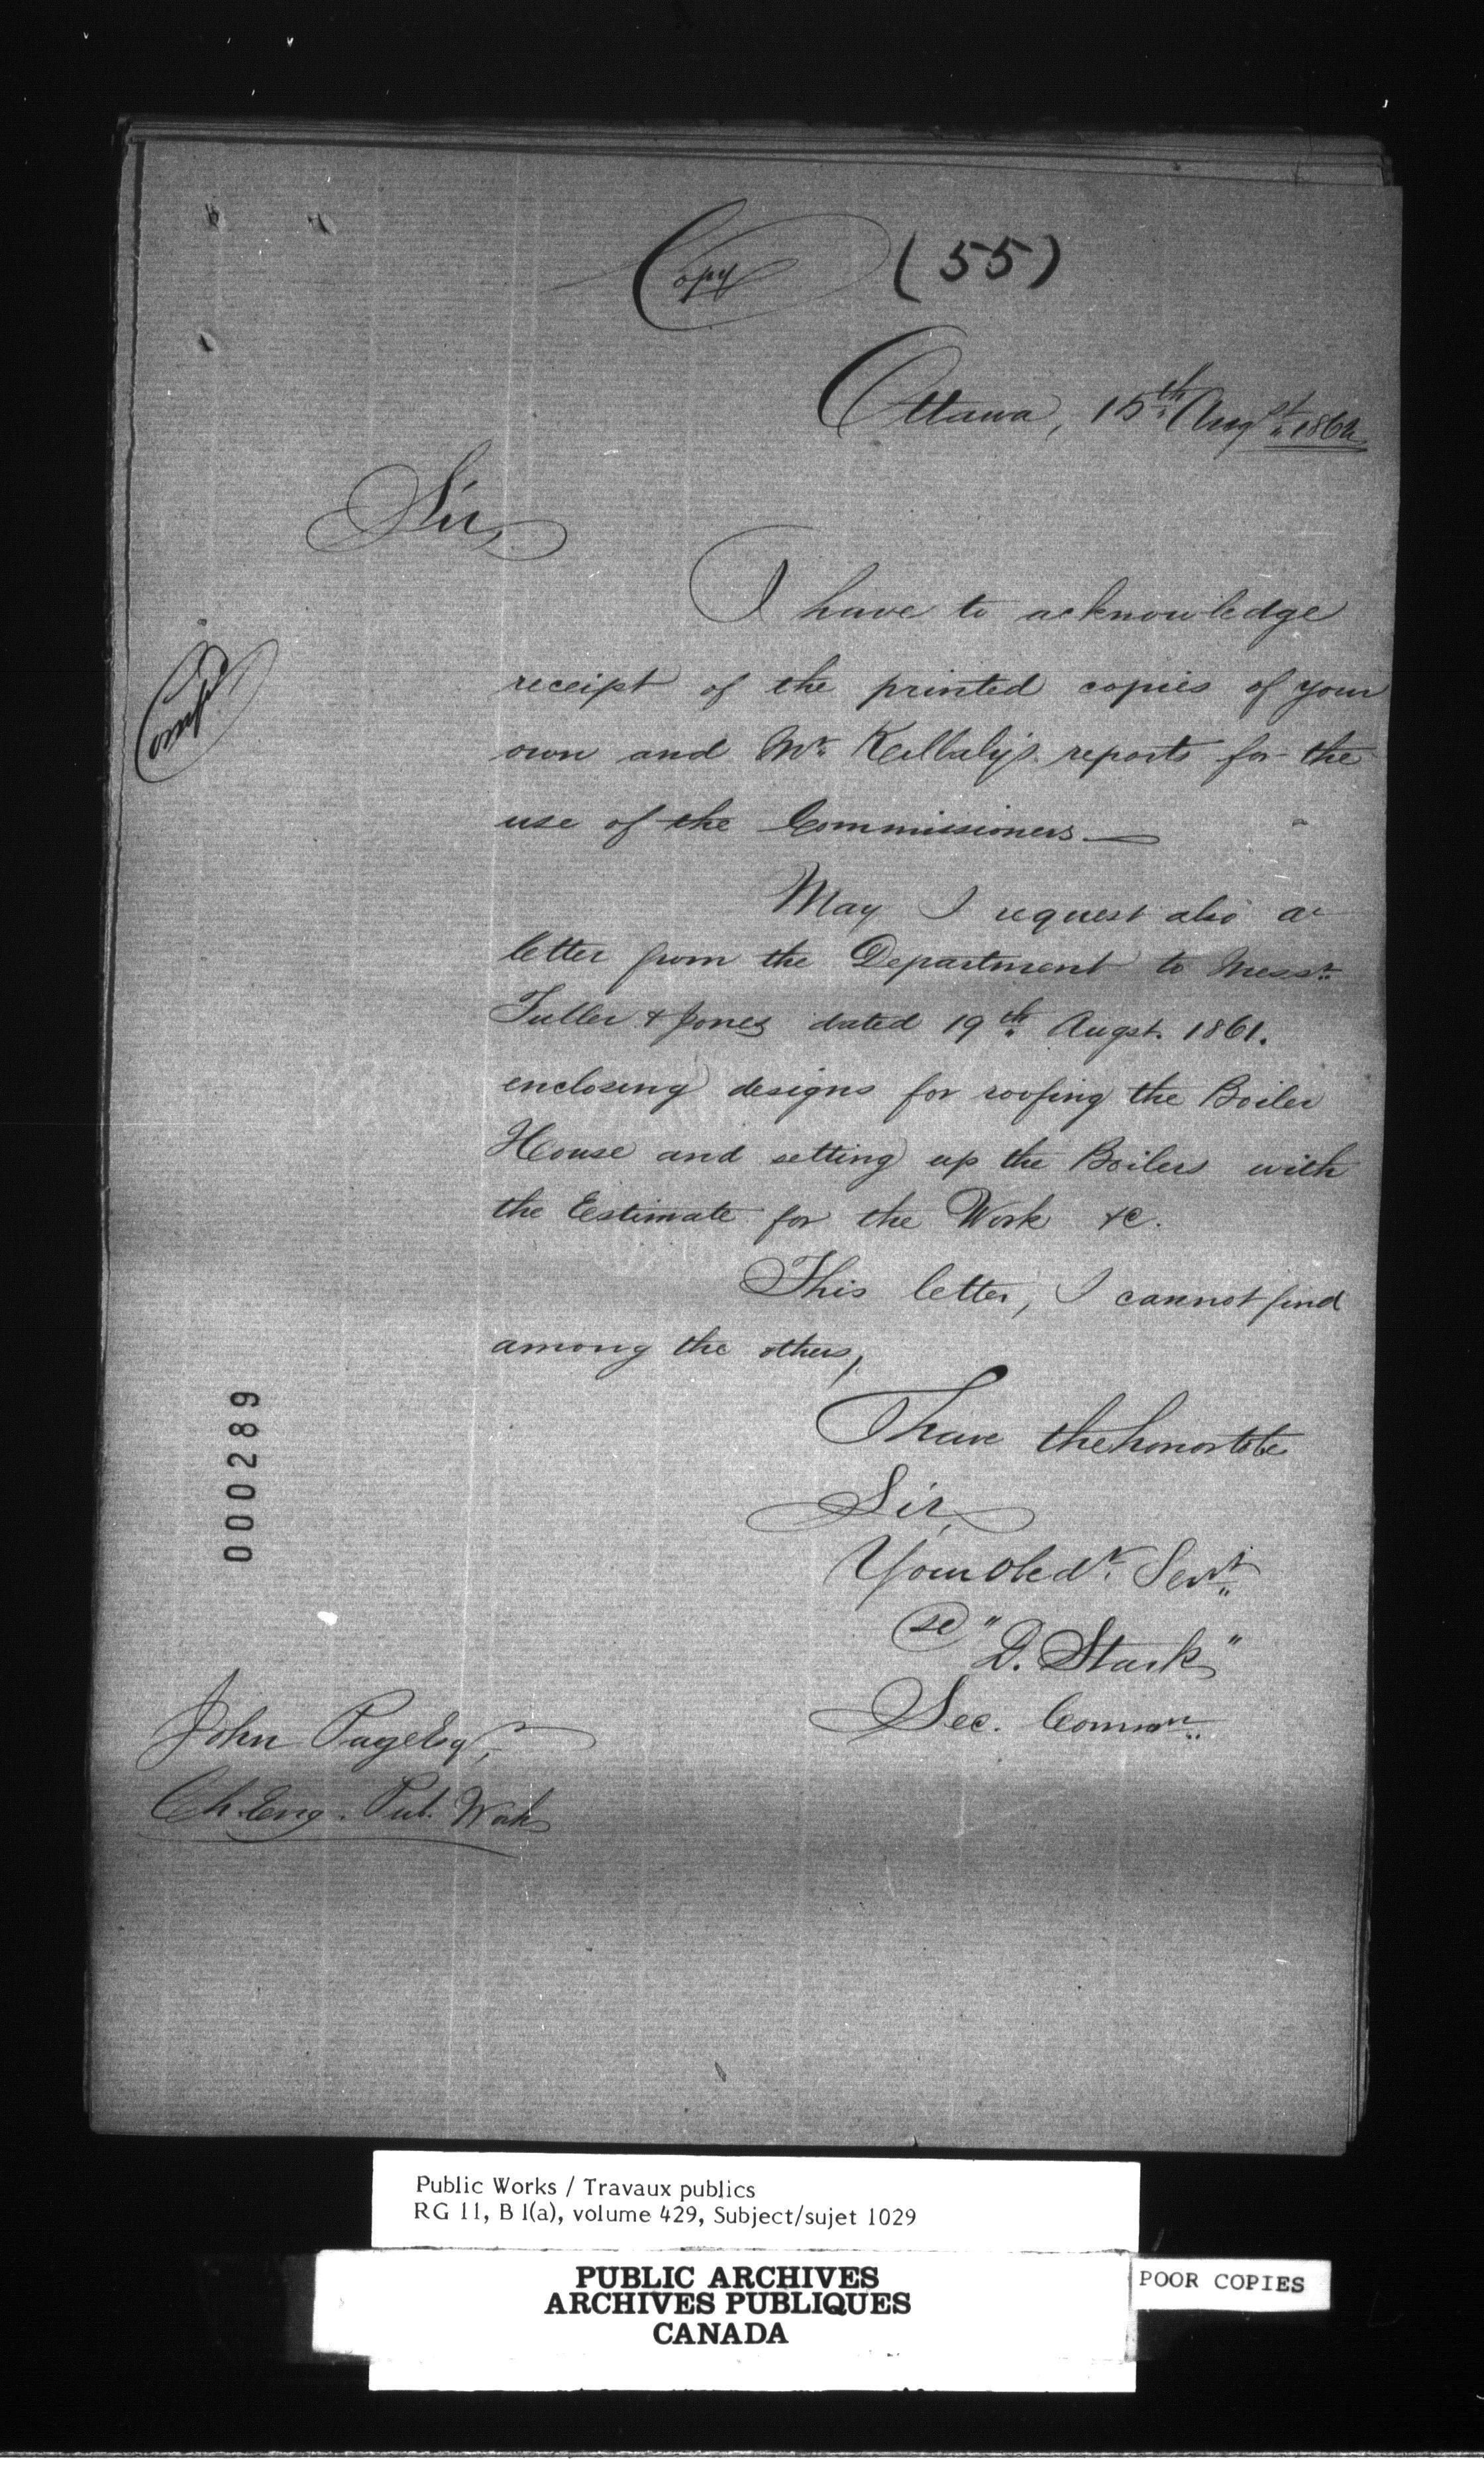 Copy (55)
Ottawa, 15th Augst. 1862
Sir,
I have to acknowledge
receipt of the printed copies of your
own and Mr. Keilbaly's reports for the
use of the Commissioners—
Comp'd
May I request also a
letter from the Department to Messrs.
Fuller & Jones dated 19th Augst. 1861.
enclosing designs for roofing the Boiler
House and setting up the Boilers with
the Estimate for the Work &c.
This letter, I cannot find
among the others,
I have the honor to be
Sir,
Your Obedt. Servt.
"D. Stark"
Sec. Commn.
John Page Esq,
Ch. Eng. Pub. Works
000289
Public Works / Travaux publics
RG 11, B 1(a), volume 429, Subject/sujet 1029
PUBLIC ARCHIVES
ARCHIVES PUBLIQUES
CANADA
POOR COPIES